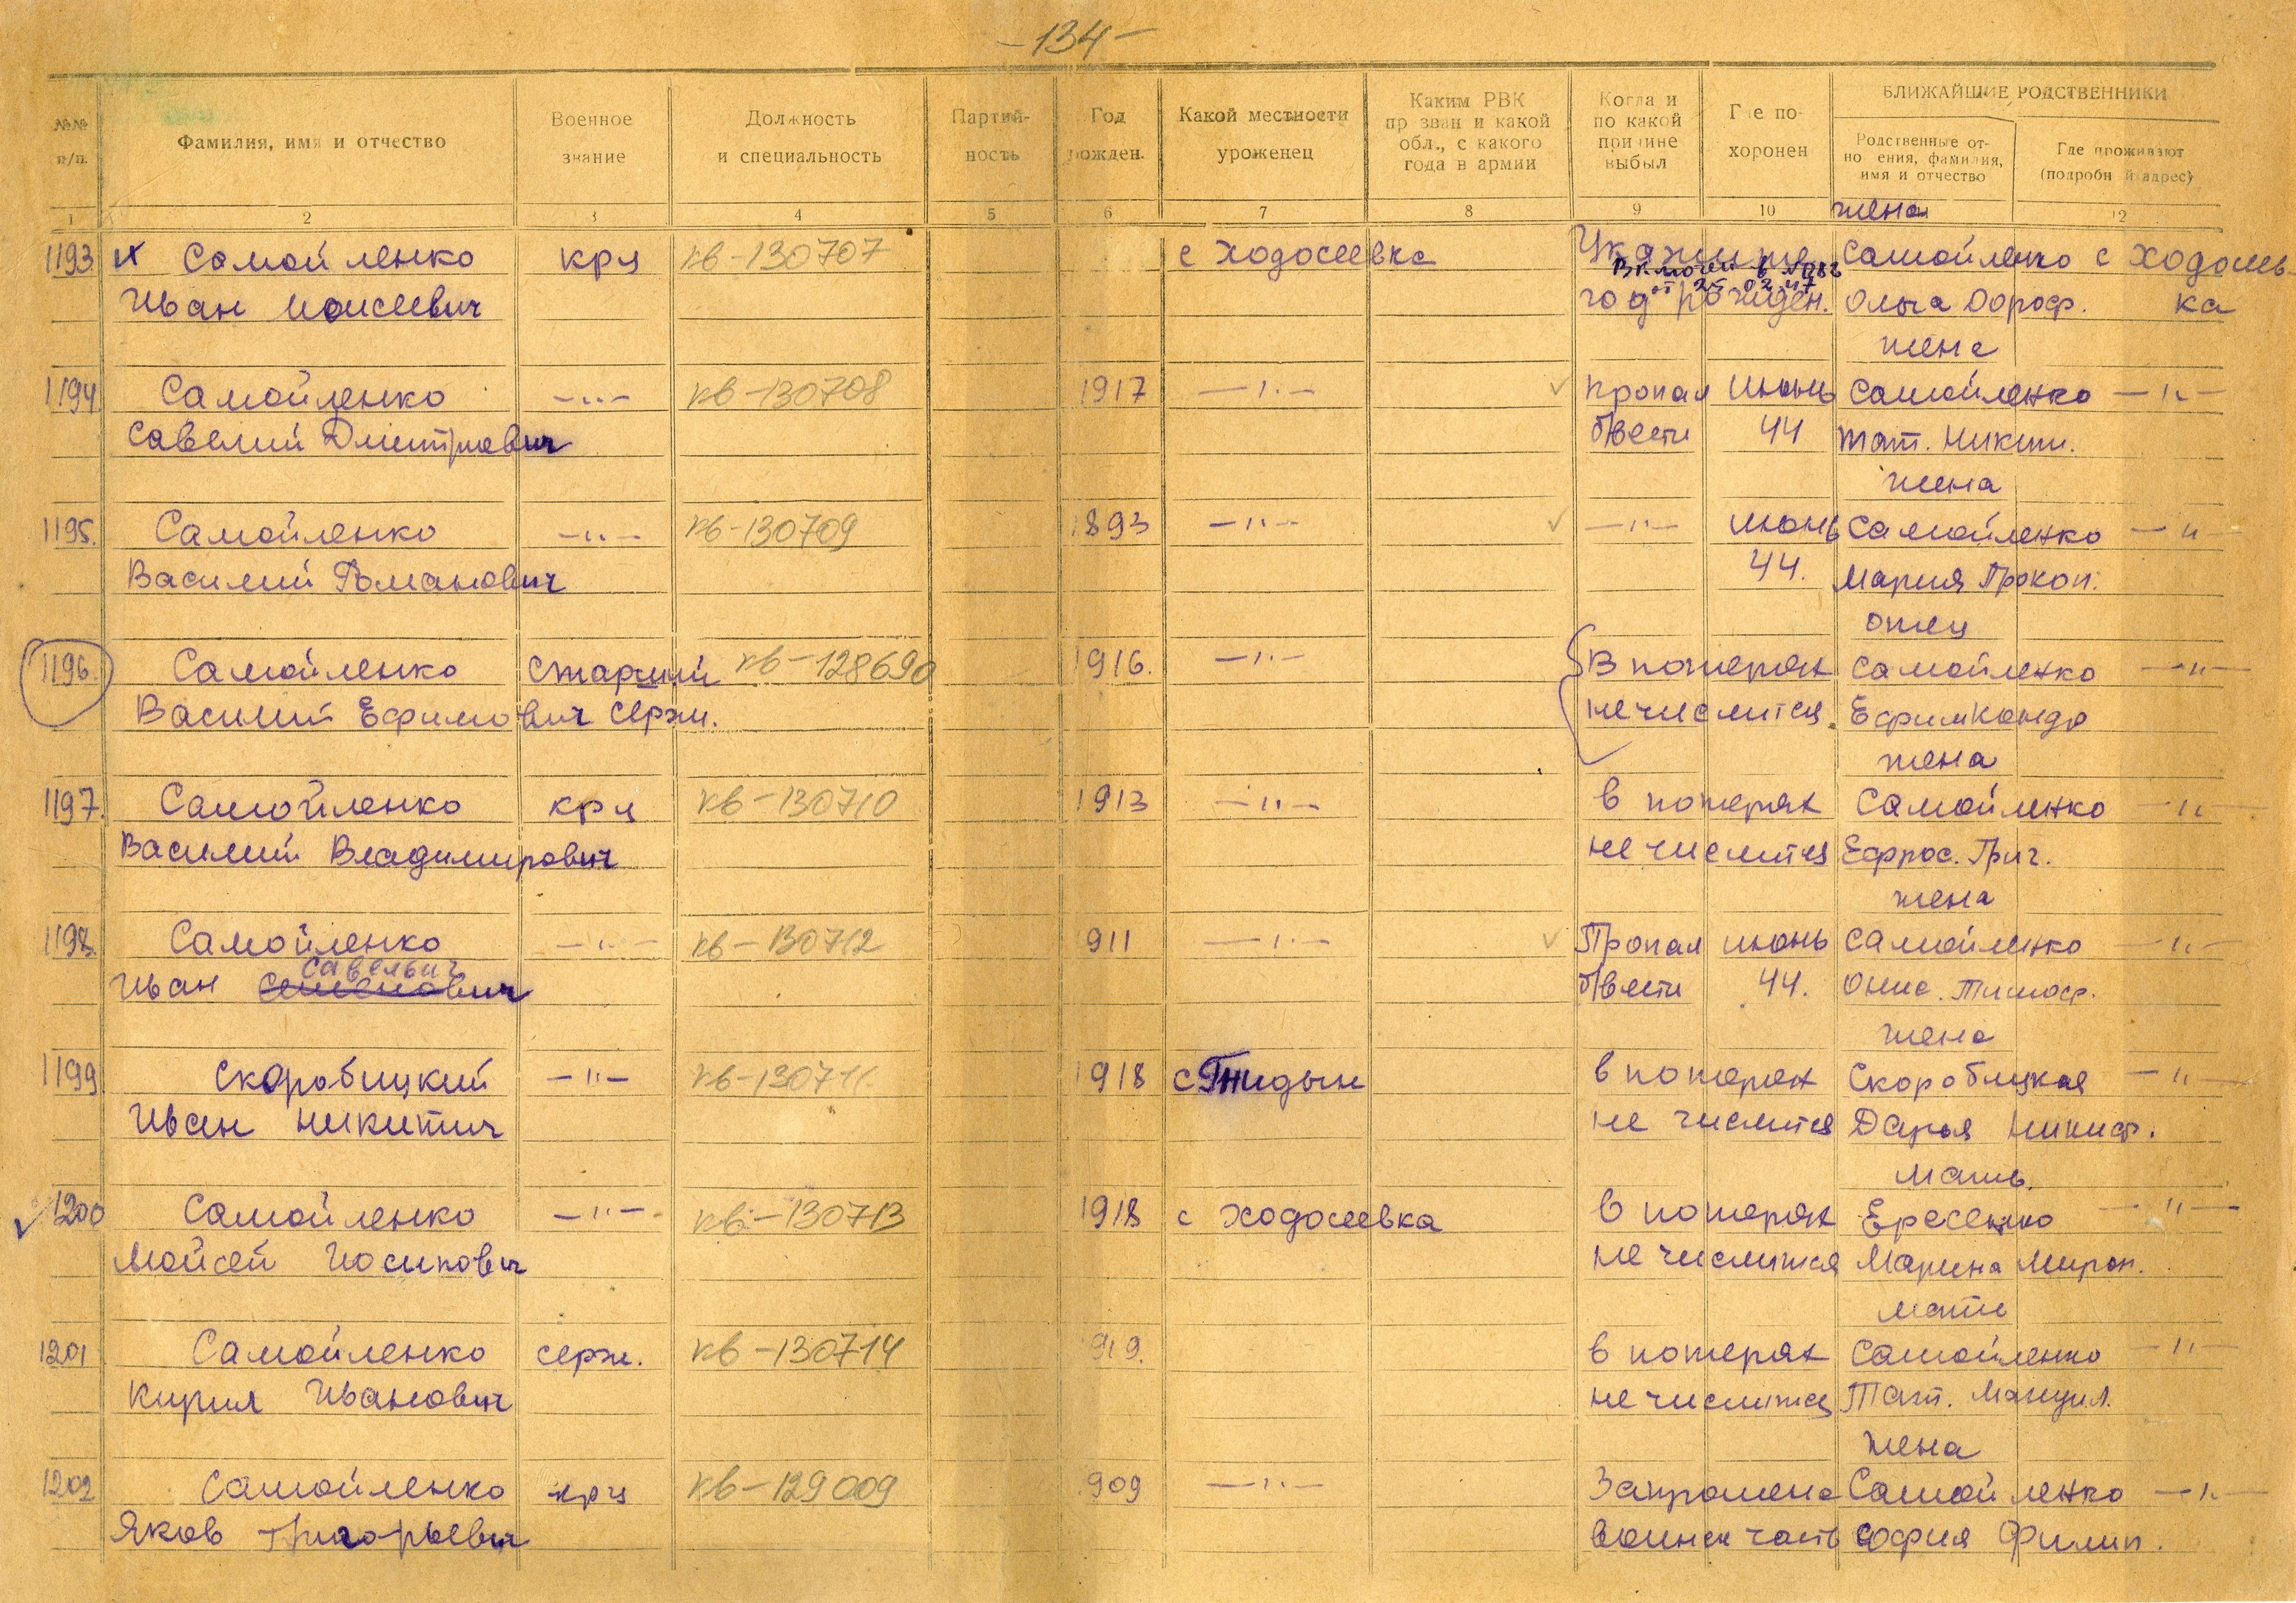 -134-
БЛИЖАЙШИЕ РОДСТВЕННИКИ
№№ п/п.
Фамилия, имя и отчество
Военное звание
Должность и специальность
Партийность
Год рожден.
Какой местности уроженец
Каким РВК призван и какой обл., с какого года в армии
Когда и по какой причине выбыл
Где похоронен
Родственные отношения, фамилия, имя и отчество
Где проживают (подробный адрес)
1 2 3 4 5 6 7 8 9 10 12
жена
1193. Самойленко крц кв-130707 с Ходосеевка Укажите Самойленко с Ходосеев
в 25.02.47
Иван Моисеевич год рожден. Ольга Дороф. ка
жена
1194 Самойленко —"— кв-130708 1917 —"— Пропал июнь Самойленко —"—
Савелий Дмитриевич б/вести 44 Тат. Никит.
жена
1195. Самойленко —"— кв-130709 1893 —"— —"— июнь Самойленко —"—
Василий Романович 44. Мария Прокоп.
отец
1196. Самойленко старший кв-128690 1916. —"— В потерях Самойленко —"—
Василий Ефимович серж. не числится. Ефим
жена
1197. Самойленко крц кв-130710 1913 —"— в потерях Самойленко —"—
Василий Владимирович не числится Ефрос. Григ.
жена
1198. Самойленко —"— кв-130712 1911 —"— Пропал июнь Самойленко —"—
Савельич
Иван Семенович б/вести 44. Онис. Тимоф.
жена
1199 Скоробицкий —"— кв-130711 1918 с Гнидын в потерях Скоробицкая —"—
Иван Никитич не числится Дарья Никиф.
Мать.
1200 Самойленко —"— кв-130713 1918 с Ходосеевка в потерях Ересенко —"—
Мойсей Иосипович не числится Марина Мирон.
мать
1201 Самойленко серж. кв-130714 919. в потерях Самойленко —"—
Кирил Иванович не числится Тат.
жена
1202 Самойленко крц кв-129009 909 —"— Запрошена Самойленко —"—
Яков Григорьевич воинск часть София Филип.